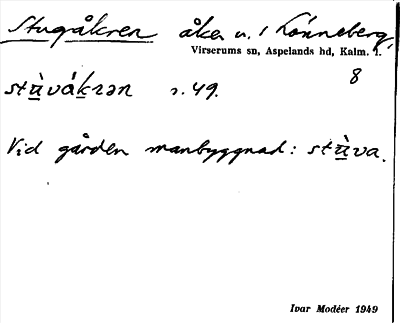 Stugåkren åker u. / Lönneberg,
Virserums sn, Aspelands hd, Kalm. l.
8
stùvákrən r. 49.
Vid gården manbyggnad: stùva.
Ivar Modéer 1949